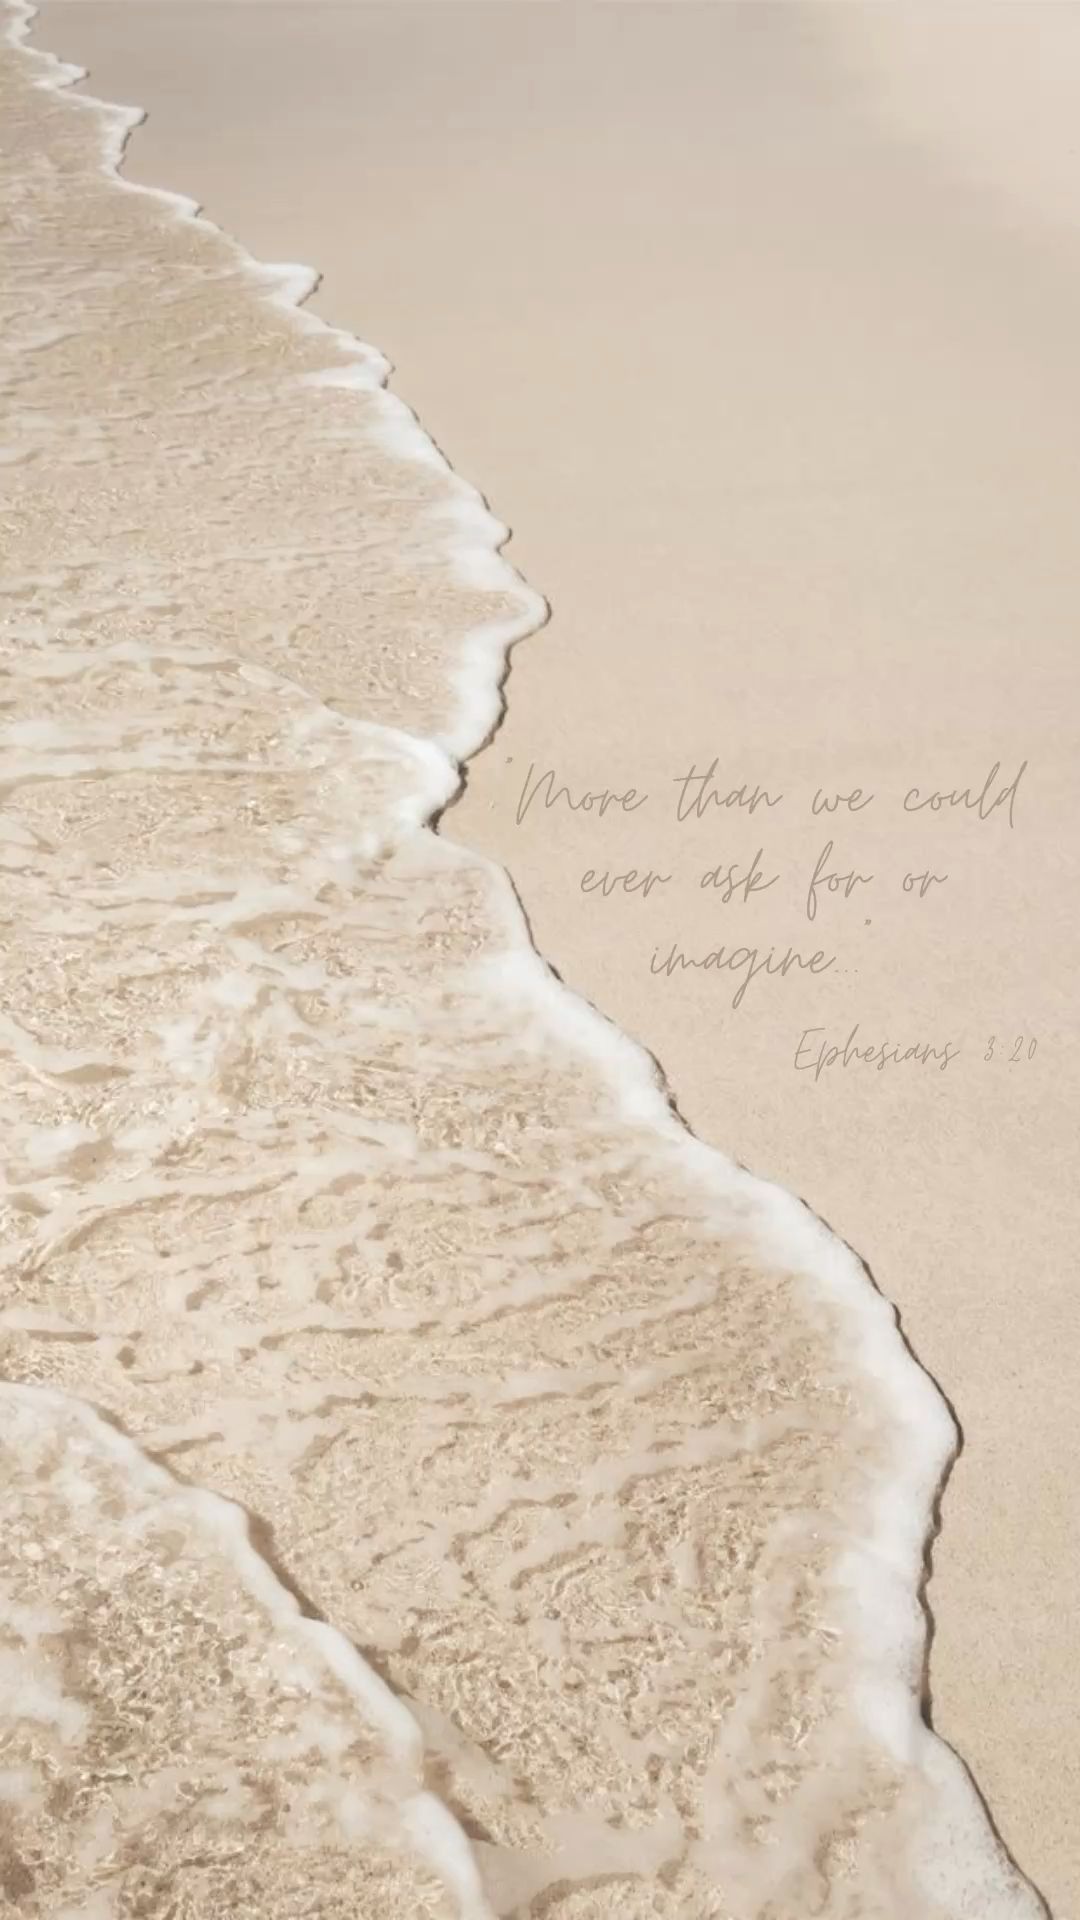 "More than we could
ever ask for or
imagine..."
Ephesians 3:20